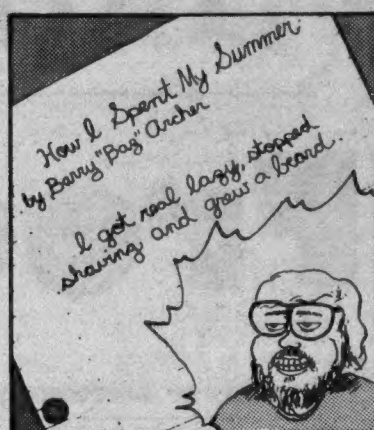 How I Spent My Summer
by Barry "Baz" Archer
I got real lazy, stopped
shaving and grew a beard.